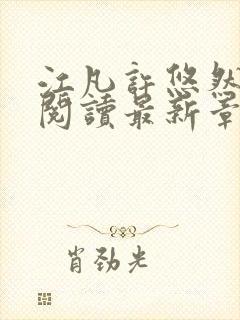 江凡許悠然
閱讀最新章
肖勁光